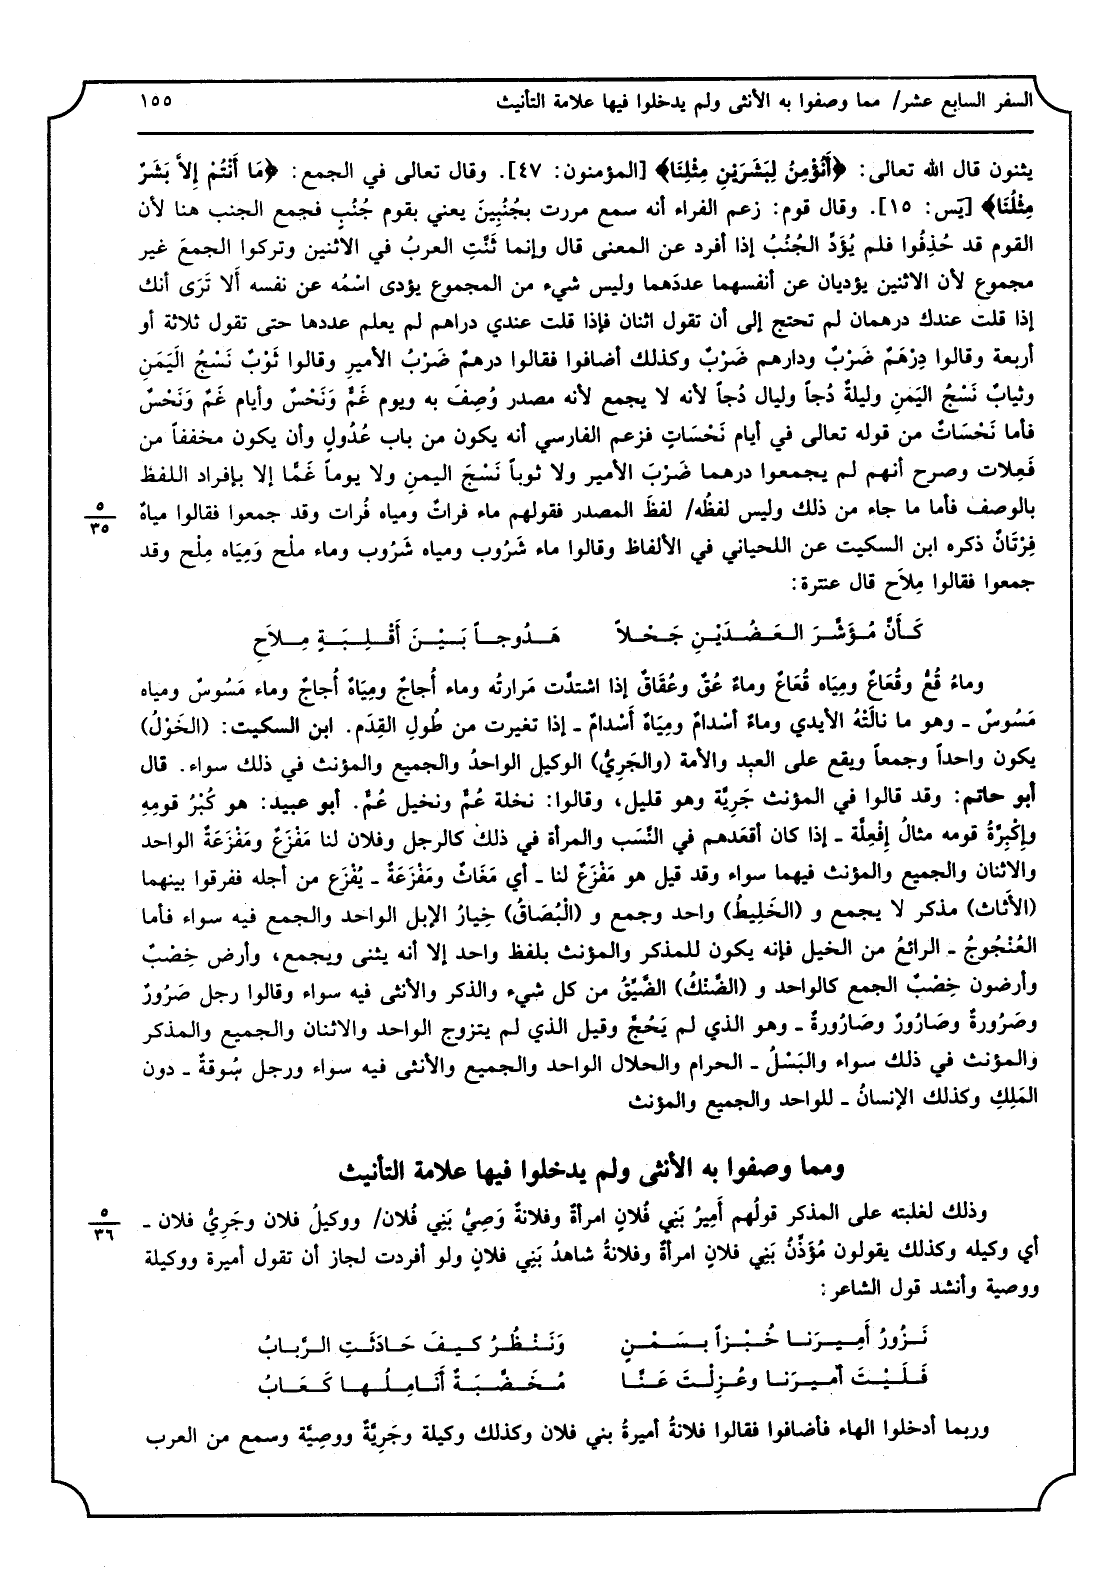 السفر السابع عشر/ مما وصفوا به الأنثى ولم يدخلوا فيها علامة التأنيث ١٥٥
يثنون قال الله تعالى: ﴿أَنُؤْمِنُ لِبَشَرَيْنِ مِثْلِنَا﴾ [المؤمنون: ٤٧]. وقال تعالى في الجمع: ﴿مَا أَنْتُمْ إِلاَّ بَشَرٌ
مِثْلُنَا﴾ [يٓس: ١٥]. وقال قوم: زعم الفراء أنه سمع مررت بجُنُبِينَ يعني بقوم جُنُبٍ فجمع الجنب هنا لأن
القوم قد حُذِفُوا فلم يُؤَدِّ الجُنُبُ إذا أفرد عن المعنى قال وإنما ثَنَّتِ العربُ في الاثنين وتركوا الجمعَ غير
مجموع لأن الاثنين يؤديان عن أنفسهما عددَهما وليس شيء من المجموع يؤدى اسْمُه عن نفسه ألا تَرَى أنك
إذا قلت عندك درهمان لم تحتج إلى أن تقول اثنان فإذا قلت عندي دراهم لم يعلم عددها حتى تقول ثلاثة أو
أربعة وقالوا دِرْهَمٌ ضَرْبٌ ودارهم ضَرْبٌ وكذلك أضافوا فقالوا درهمٌ ضَرْبُ الأميرِ وقالوا ثَوْبٌ نَسْجُ الْيَمَنِ
وثيابٌ نَسْجُ اليَمنِ وليلةٌ دُجاً وليال دُجاً لأنه لا يجمع لأنه مصدر وُصِفَ به ويوم غَمٌّ وَنَحْسٌ وأيام غَمٌ وَنَحْسٌ
فأما نَحْسَاتٌ من قوله تعالى في أيام نَحْسَاتٍ فزعم الفارسي أنه يكون من باب عُدُولٍ وأن يكون مخففاً من
فَعِلات وصرح أنهم لم يجمعوا درهما ضَرْبَ الأمير ولا ثوباً نَسْجَ اليمنِ ولا يوماً غَمًّا إلا بإفراد اللفظ
بالوصف فأما ما جاء من ذلك وليس لفظُه/ لفظَ المصدر فقولهم ماء فراتٌ ومياه فُرات وقد جمعوا فقالوا مياهٌ
٥
٣٥
فِرْتَانٌ ذكره ابن السكيت عن اللحياني في الألفاظ وقالوا ماء شَرُوب ومياه شَرُوب وماء ملْح وَمِيَاه مِلْح وقد
جمعوا فقالوا مِلاَح قال عنترة:
كَأَنَّ مُؤَشَّرَ العَضُدَيْنِ جَحْلاً هَدُوجاً بَيْنَ أَقْلِبَةٍ مِلاَحِ
وماءُ قُعٌّ وقُعَاعٌ ومِيَاه قُعَاعٌ وماءٌ عُقٌ وعُقَاقٌ إذا اشتدَّت مَرارتُه وماء أُجاجٌ ومِيَاهٌ أُجاجٌ وماء مَسُوسٌ ومياه
مَسُوسٌ ـ وهو ما نالَتْهُ الأيدي وماءٌ أسْدامٌ ومِيَاهٌ أَسْدامٌ ـ إذا تغيرت من طُولِ القِدَم. ابن السكيت: (الخَوْلُ)
يكون واحداً وجمعاً ويقع على العبد والأمة (والجَرِيُّ) الوكيل الواحدُ والجميع والمؤنث في ذلك سواء. قال
أبو حاتم: وقد قالوا في المؤنث جَرِيَّة وهو قليل، وقالوا: نخلة عُمٌّ ونخيل عُمٌّ. أبو عبيد: هو كُبْرُ قومِهِ
وإكْبِرَّةُ قومه مثالُ إفْعِلَّة ـ إذا كان أقعَدهم في النَّسَب والمرأة في ذلك كالرجل وفلان لنا مَفْزَعٌ ومَفْزَعَةٌ الواحد
والاثنان والجميع والمؤنث فيهما سواء وقد قيل هو مَفْزَعٌ لنا ـ أي مَغَاثٌ ومَفْزَعَةٌ ـ يُفْزَع من أجله ففرقوا بينهما
(الأَثاث) مذكر لا يجمع و (الخَلِيطُ) واحد وجمع و (الْبُصَاقُ) خِيارُ الإبل الواحد والجمع فيه سواء فأما
العُنْجُوجُ ـ الرائعُ من الخيل فإنه يكون للمذكر والمؤنث بلفظ واحد إلا أنه يثنى ويجمع، وأرض خِصْبٌ
وأرضون خِصْبٌ الجمع كالواحد و (الضَّنْكُ) الضَّيِّقُ من كل شيء والذكر والأنثى فيه سواء وقالوا رجل صَرُورٌ
وصَرُورةٌ وصَارُورٌ وصَارُورةٌ ـ وهو الذي لم يَحُجَّ وقيل الذي لم يتزوج الواحد والاثنان والجميع والمذكر
والمؤنث في ذلك سواء والبَسْلُ ـ الحرام والحلال الواحد والجميع والأنثى فيه سواء ورجل سُوقةٌ ـ دون
المَلِكِ وكذلك الإنسانُ ـ للواحد والجميع والمؤنث
ومما وصفوا به الأنثى ولم يدخلوا فيها علامة التأنيث
وذلك لغلبته على المذكر قولُهم أَمِيرُ بَنِي فُلانٍ امرأةٌ وفلانةٌ وَصِيُّ بَنِي فُلان/ ووكيلُ فلان وجَرِيُّ فلان ـ
٥
٣٦
أي وكيله وكذلك يقولون مُؤَذِّنُ بَنِي فلانٍ امرأةٌ وفلانةُ شاهدُ بَنِي فلانٍ ولو أفردت لجاز أن تقول أميرة ووكيلة
ووصية وأنشد قول الشاعر:
نَزُورُ أَمِيرَنا خُبْزاً بسَمْنٍ وَنَنْظُرُ كيفَ حَادَثَتِ الرَّبابُ
فَلَيْتَ أمِيرَنا وعُزِلْتَ عَنَّا مُخَضَّبَةٌ أَنَامِلُها كَعَابُ
وربما أدخلوا الهاء فأضافوا فقالوا فلانةُ أميرةُ بني فلان وكذلك وكيلة وجَرِيَّةٌ ووصِيَّة وسمع من العرب